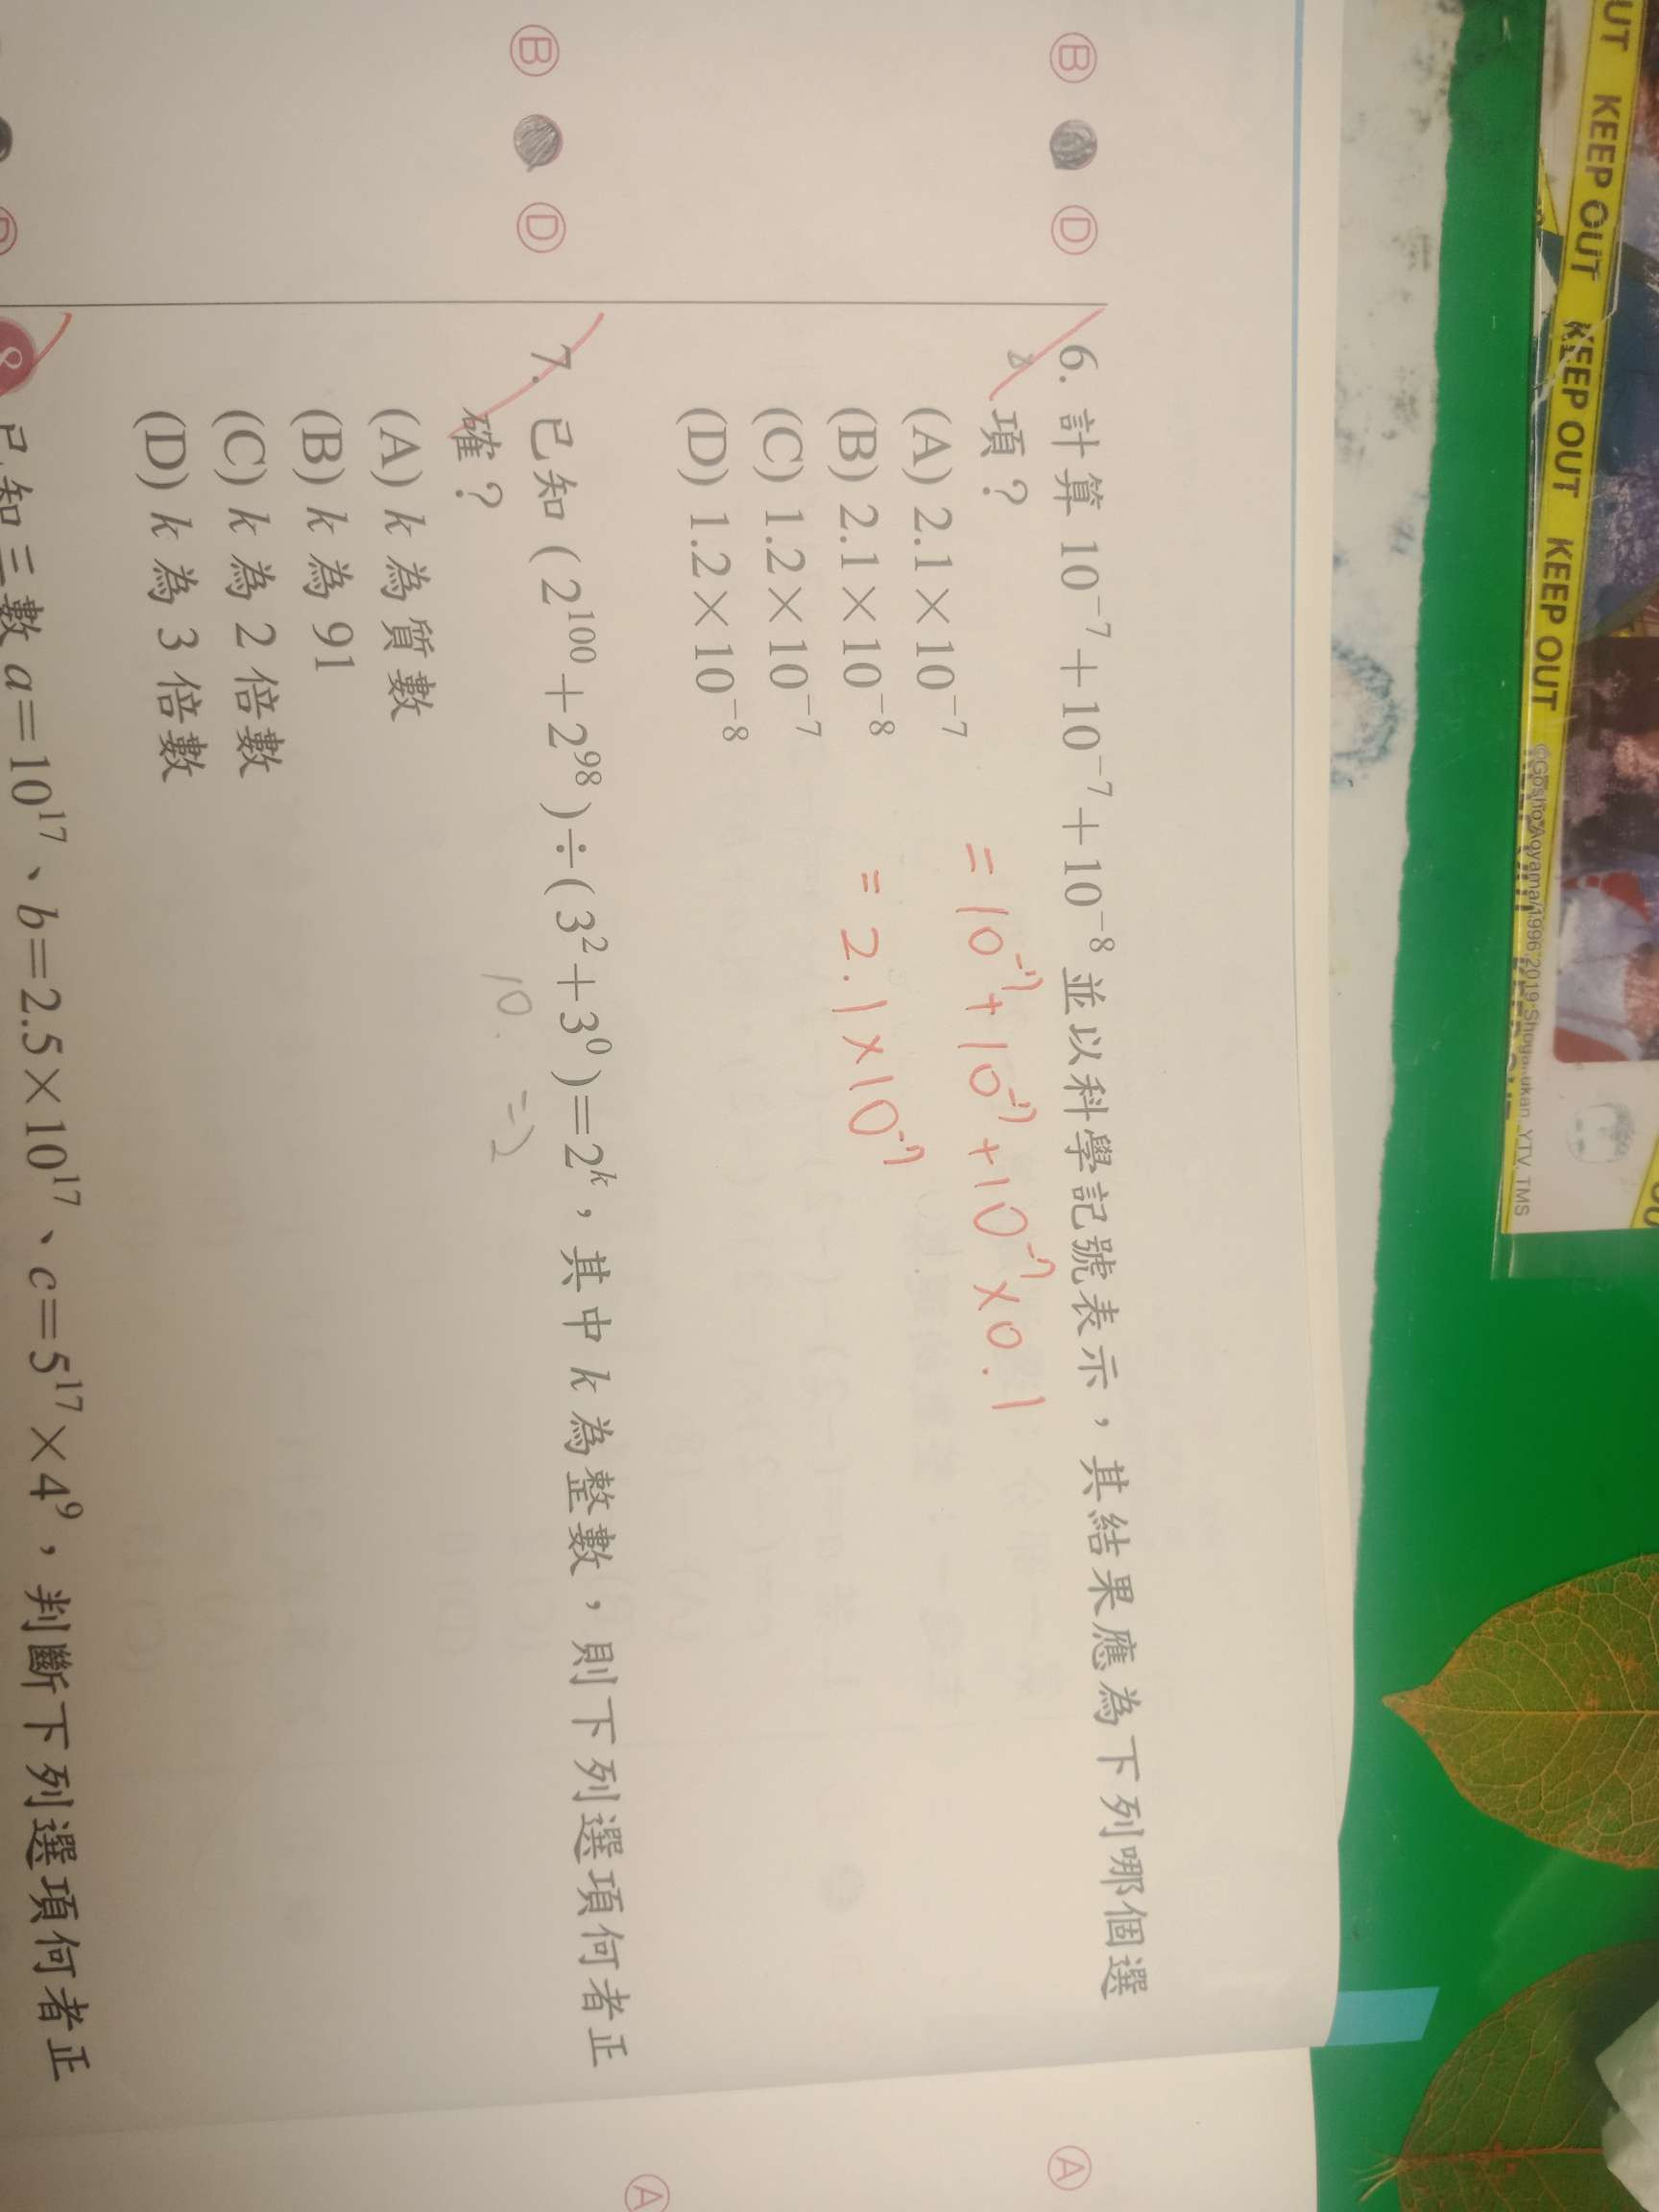 6. 計算 10⁻⁷+10⁻⁷+10⁻⁸ 並以科學記號表示，其結果應為下列哪個選
項？
= 10⁻⁷ + 10⁻⁷ + 10⁻⁷ × 0.1
(A) 2.1×10⁻⁷
= 2.1 × 10⁻⁷
(B) 2.1×10⁻⁸
(C) 1.2×10⁻⁷
(D) 1.2×10⁻⁸
7. 已知 (2¹⁰⁰+2⁹⁸)÷(3²+3⁰)=2ᵏ，其中 k 為整數，則下列選項何者正
10. =2
確？
(A) k 為質數
(B) k 為 91
(C) k 為 2 倍數
(D) k 為 3 倍數
8 已知三數 a=10¹⁷、b=2.5×10¹⁷、c=5¹⁷×4⁹，判斷下列選項何者正
B D
B D
A
A
KEEP OUT KEEP OUT KEEP OUT KEEP OUT
©Gosho Aoyama/1996,2019 Shogakukan, YTV, TMS